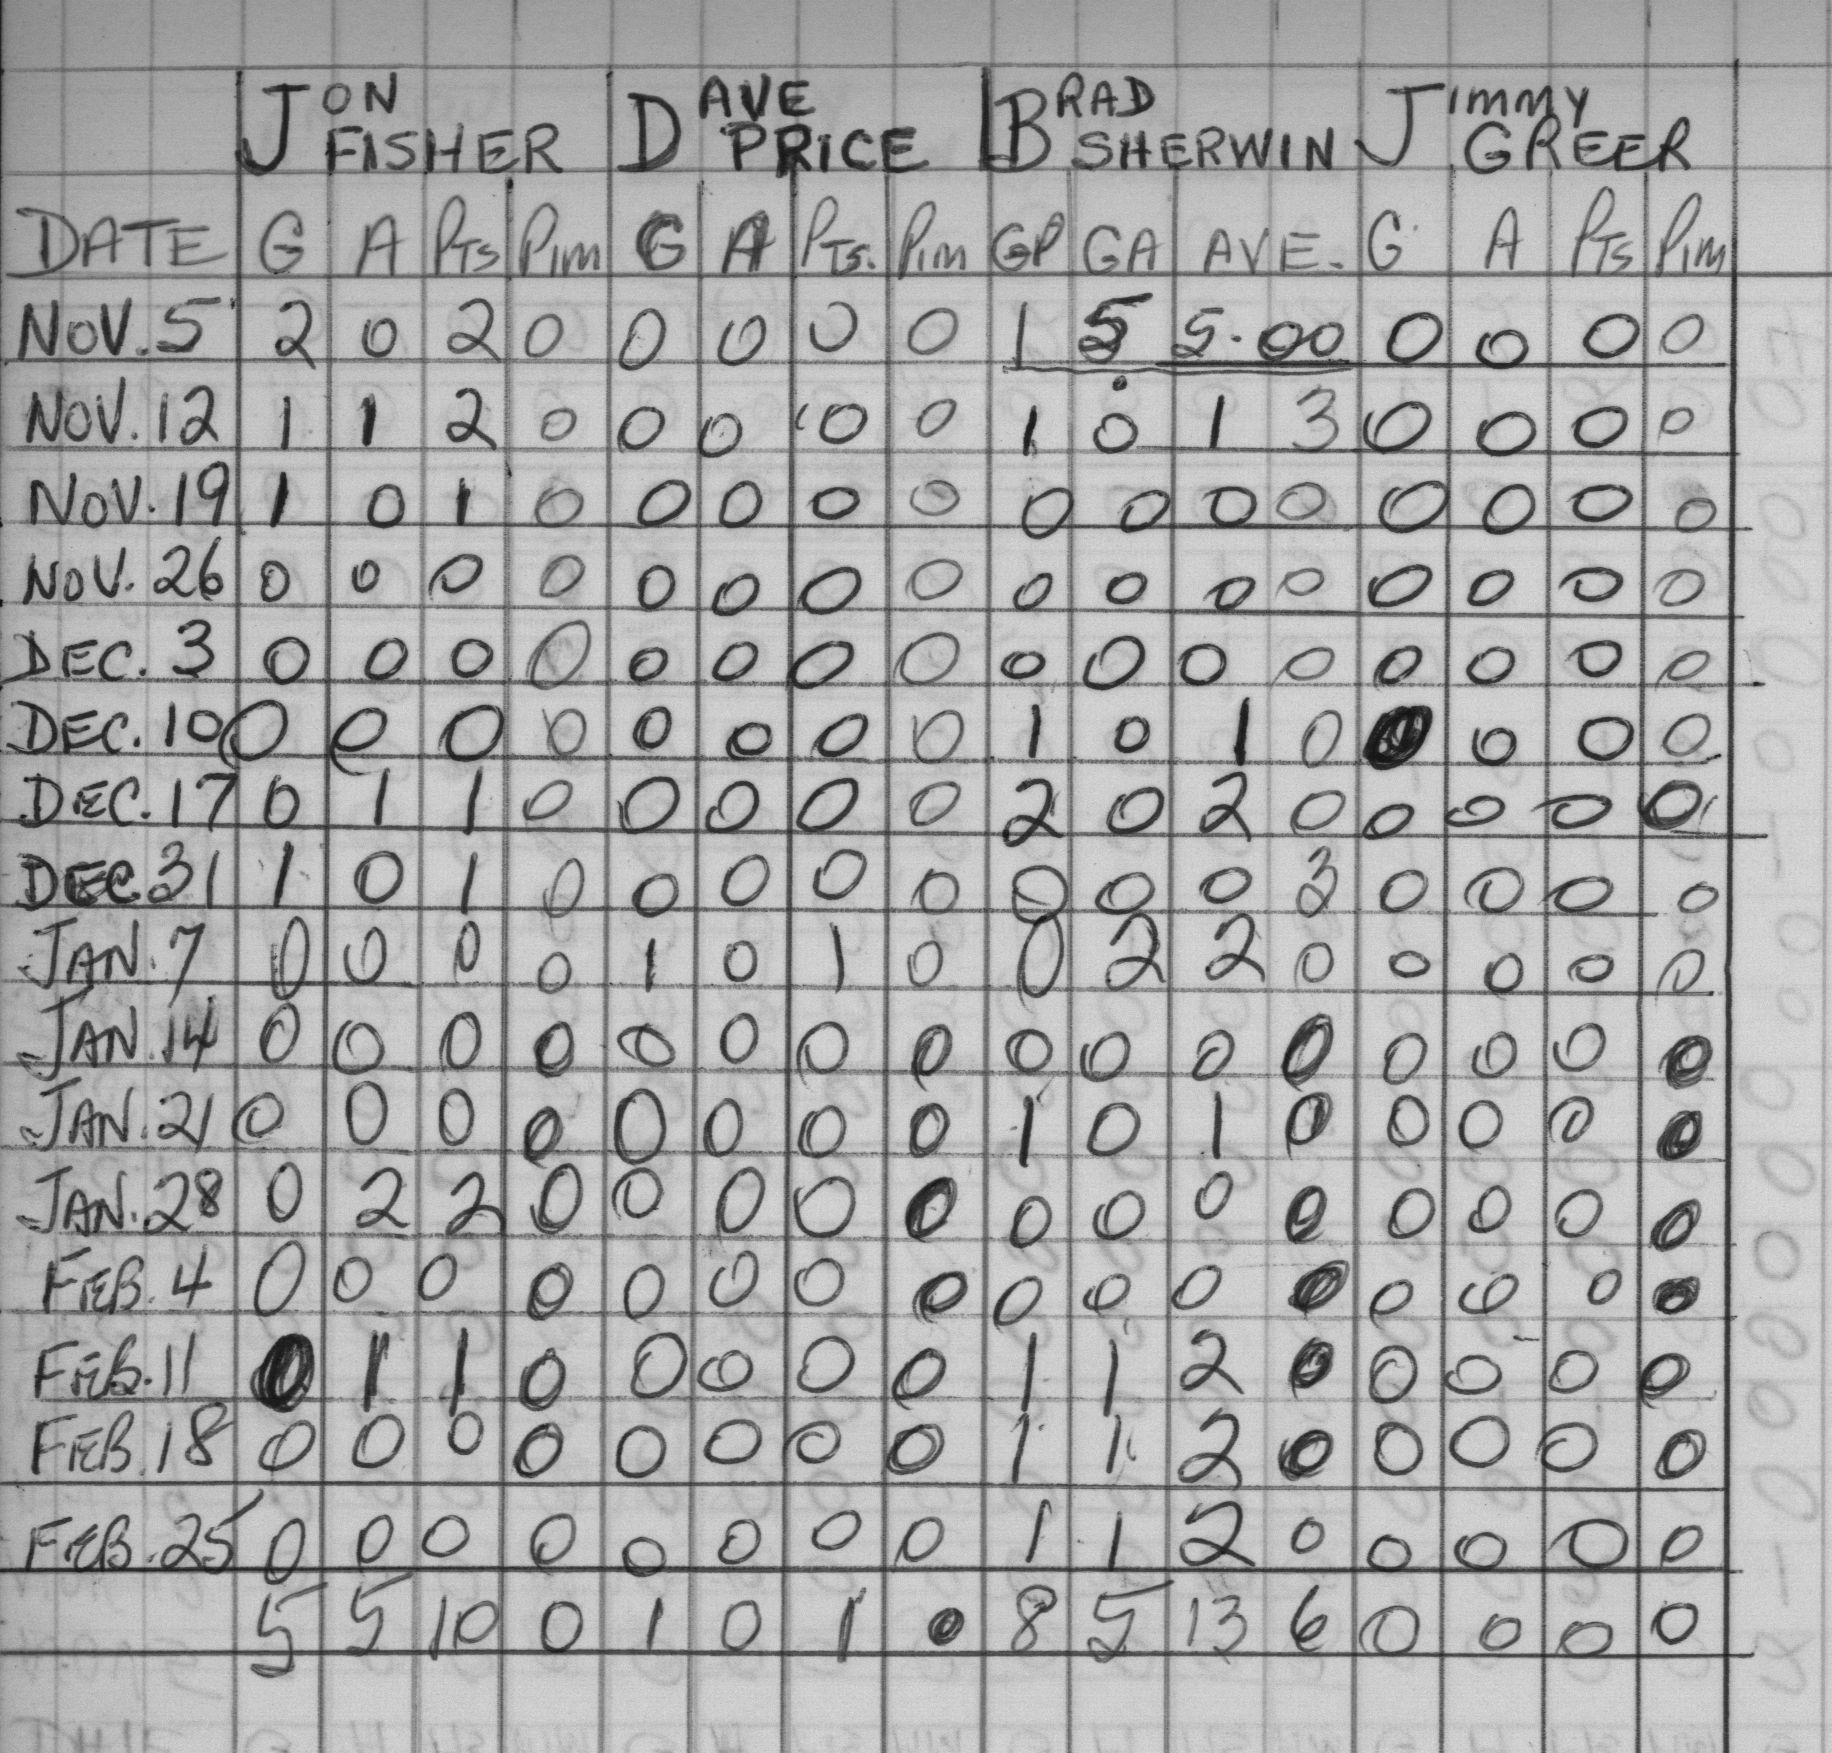 JON FISHER DAVE PRICE BRAD SHERWIN JIMMY GREER
DATE G A PTS PIM G A PTS. PIM GP GA AVE. G A PTS PIM
NOV. 5 2 0 2 0 0 0 0 0 1 5 5.00 0 0 0 0
NOV. 12 1 1 2 0 0 0 0 0 1 0 1 3 0 0 0 0
NOV. 19 1 0 1 0 0 0 0 0 0 0 0 0 0 0 0 0
NOV. 26 0 0 0 0 0 0 0 0 0 0 0 0 0 0 0 0
DEC. 3 0 0 0 0 0 0 0 0 0 0 0 0 0 0 0 0
DEC. 10 0 0 0 0 0 0 0 0 1 0 1 0 0 0 0 0
DEC. 17 0 1 1 0 0 0 0 0 2 0 2 0 0 0 0 0
DEC. 31 1 0 1 0 0 0 0 0 0 0 0 3 0 0 0 0
JAN. 7 0 0 0 0 1 0 1 0 0 2 2 0 0 0 0 0
JAN. 14 0 0 0 0 0 0 0 0 0 0 0 0 0 0 0 0
JAN. 21 0 0 0 0 0 0 0 0 1 0 1 0 0 0 0 0
JAN. 28 0 2 2 0 0 0 0 0 0 0 0 0 0 0 0 0
FEB. 4 0 0 0 0 0 0 0 0 0 0 0 0 0 0 0 0
FEB. 11 0 1 1 0 0 0 0 0 1 1 2 0 0 0 0 0
FEB. 18 0 0 0 0 0 0 0 0 1 1 2 0 0 0 0 0
FEB. 25 0 0 0 0 0 0 0 0 1 1 2 0 0 0 0 0
5 5 10 0 1 0 1 0 8 5 13 6 0 0 0 0